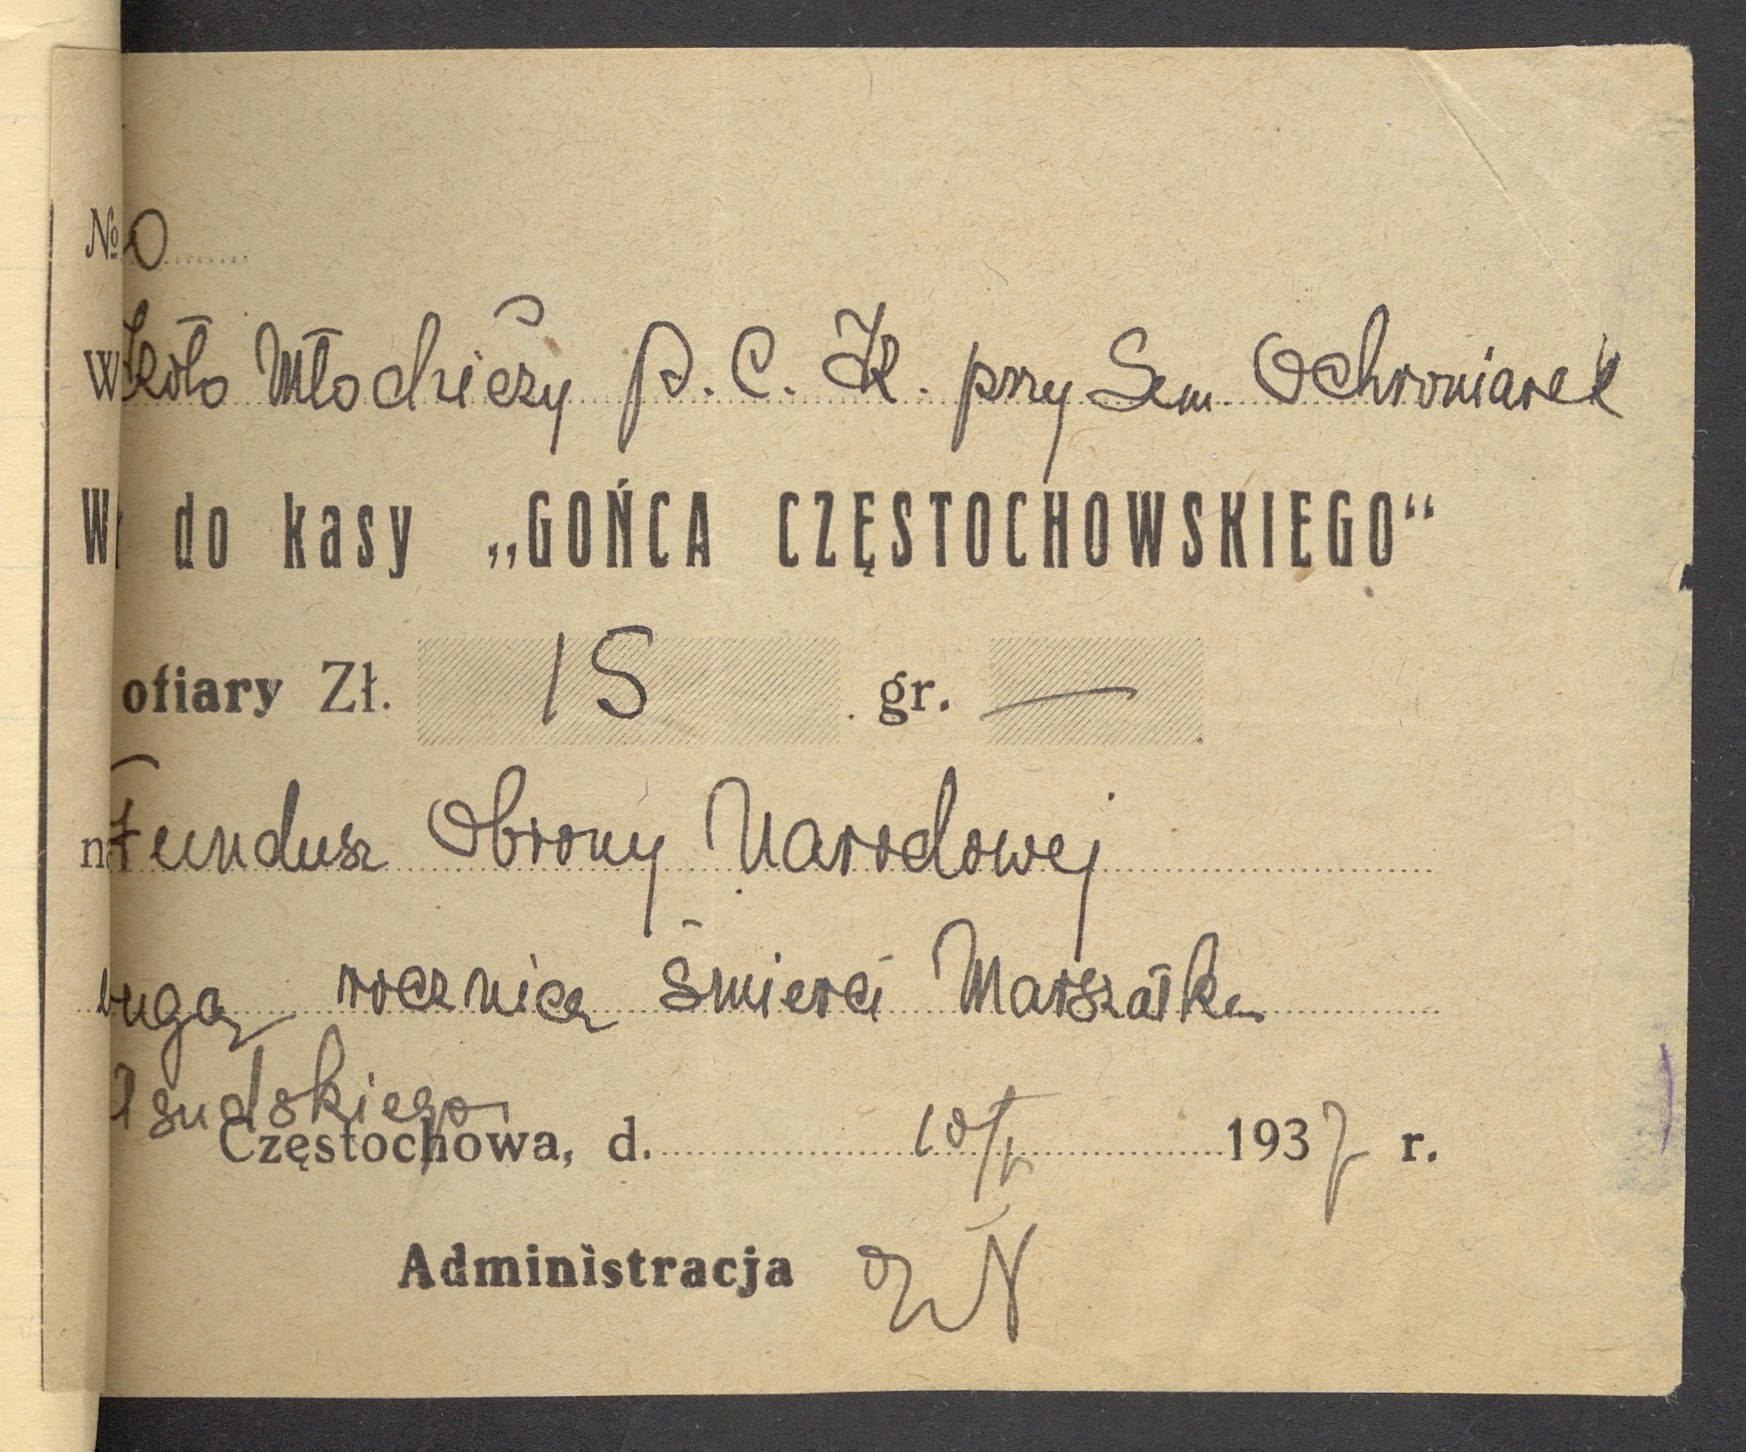 № 0
W Koło Młodzieży P. C. K. przy Sem. Ochroniarek
do kasy „GOŃCA CZĘSTOCHOWSKIEGO“
ofiary Zł. 15 gr. —
Fundusz Obrony Narodowej
rocznicę śmierci Marszałka
Częstochowa, d. 10/V 1937 r.
Administracja